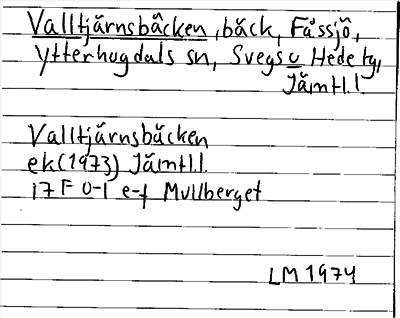 Valltjärnsbäcken, bäck, Fåssjö,
Ytterhogdals sn, Svegs o Hede tg,
Jämtl. l
Valltjärnsbäcken
ek (1973) Jämtl. l.
17 F 0-1 e-f Mullberget
LM 1974